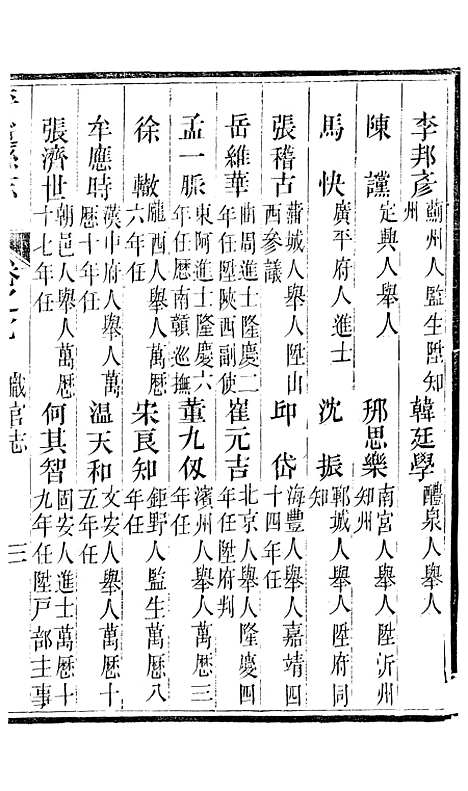 李邦彥薊州人監生陞知州　韓廷學醴泉人舉人
陳讜定興人舉人　邢思樂南宮人舉人陞沂州知州
馬快廣平府人進士　沈振鄆城人舉人陞府同知
張稽古蒲城人舉人陞山西參議　邱岱海豐人舉人嘉靖四十四年任
岳維華曲周進士隆慶二年任陞陝西副使　崔元吉北京人舉人隆慶四年任陞府判
孟一脈東阿進士隆慶六年任歷南贛巡撫　董九仭濱州人舉人萬曆三年任
徐轍隴西人舉人萬曆六年任　宋良知鉅野人監生萬曆八年任
牟應時漢中府人舉人萬曆十年任　温天和文安人舉人萬曆十五年任
張濟世朝邑人舉人萬曆十七年任　何其智固安人進士萬曆十九年任陞戸部主事
職官志　三